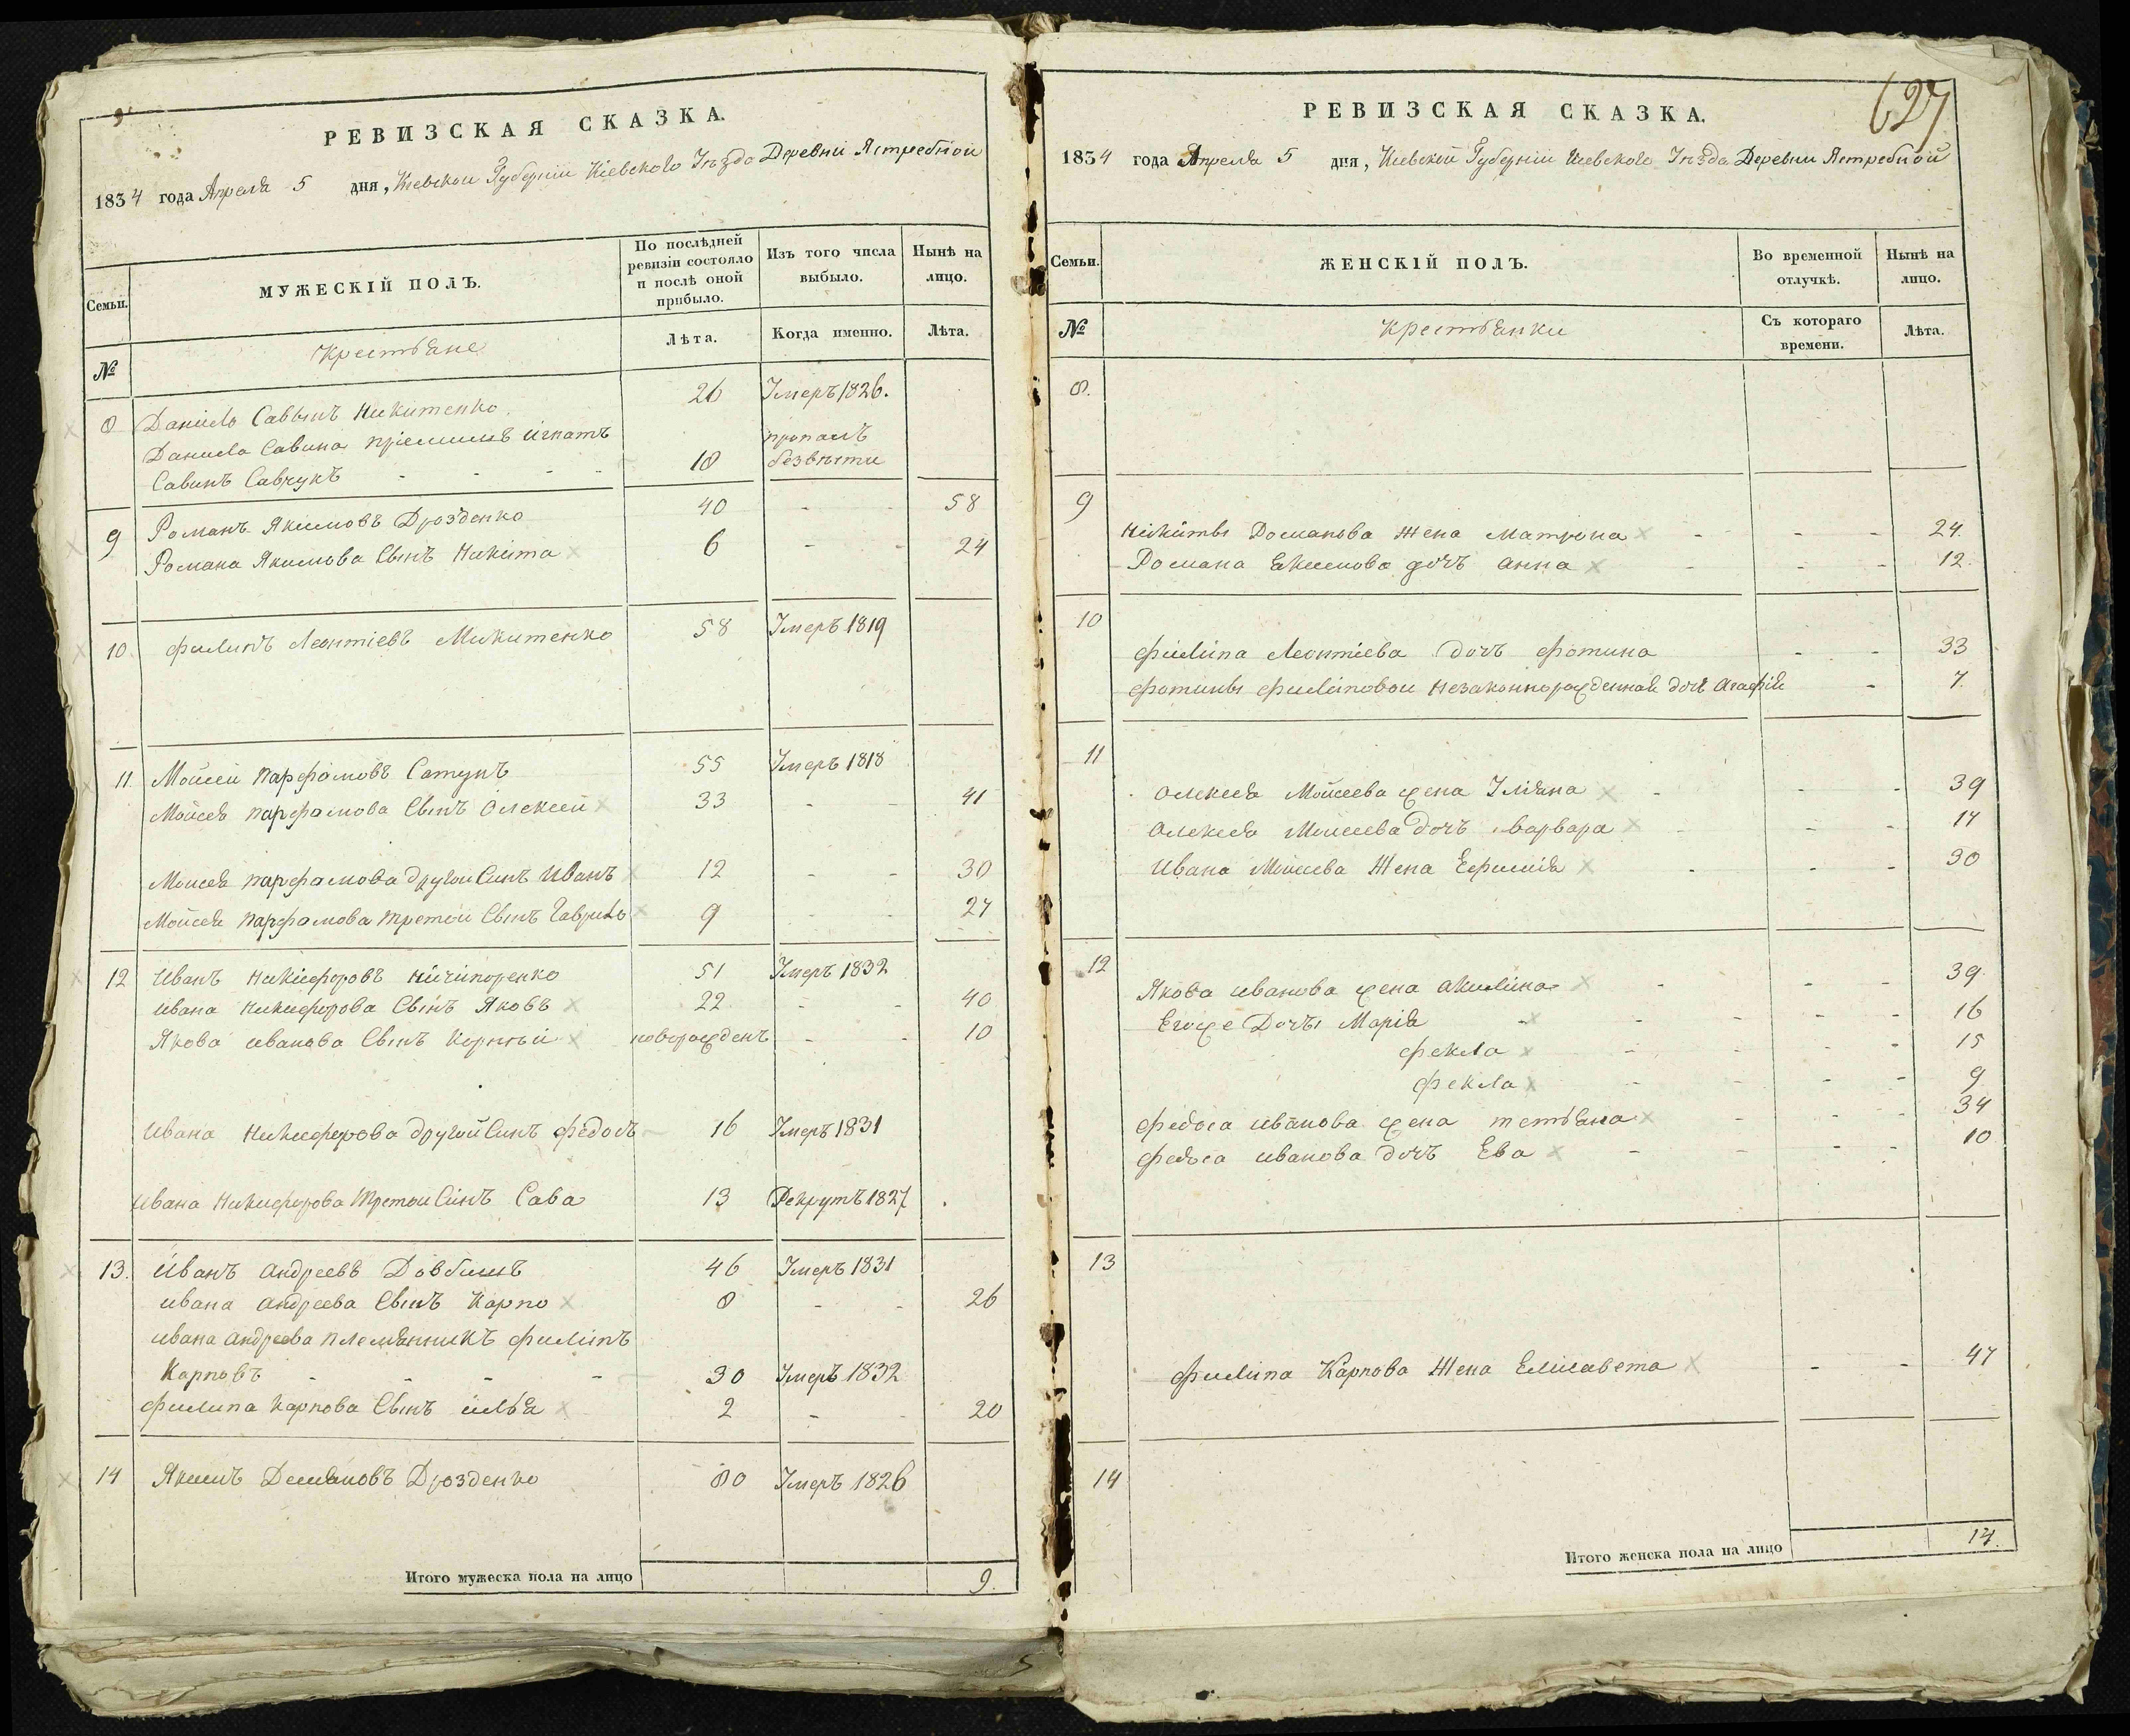 РЕВИЗСКАЯ СКАЗКА.
1834 года Апреля 5 дня, Киевской Губерніи Кіевского Уѣзда Деревни Ястребной
Семьи.
МУЖЕСКІЙ ПОЛЪ.
По послѣдней ревизіи состояло и послѣ оной прибыло.
Изъ того числа выбыло.
Нынѣ на лицо.
№
Крестьяне
Лѣта.
Когда именно.
Лѣта.
8 Данило Саввынъ Никитенко 26 Умеръ 1826.
Данила Савина пріемишъ Игнатъ пропалъ
Савинъ Савчукъ - - - 18 безвѣсти
9 Романъ Якимовъ Дрозденко 40 - - 58
Романа Якимова Сынъ Никита 6 - - 24
10. Филипъ Леонтіевъ Микитенко 58 Умеръ 1819
11. Мойсей Парфамовъ Сатунъ 55 Умеръ 1818
Мойсея Парфамова Сынъ Олексей 33 - - 41
Моисея Парфамова другой Синъ Иванъ 12 - - 30
Мойсея Парфамова третой Сынъ Гаврило 9 - - 27
12 Иванъ Никифоровъ Ничипоренко 51 Умеръ 1832
Ивана Никифорова Сынъ Яковъ 22 - - 40
Якова Иванова Сынъ Корній новорожденъ - - 10
Ивана Никифорова другой Синъ Федосъ 16 Умеръ 1831
Ивана Никифорова Третои Синъ Сава 13 Рекрутъ 1827
13. Иванъ Андреевъ Довбишъ 46 Умеръ 1831
Ивана Андреева Сынъ Карпо 8 - - 26
Ивана Андреева племянникъ Филипъ
Карповъ - - - - 30 Умеръ 1832
Филипа Карпова Сынъ Илья 2 - - 20
14 Якимъ Демяновъ Дрозденко 80 Умеръ 1826
Итого мужеска пола на лицо 9.
627
РЕВИЗСКАЯ СКАЗКА.
1834 года Апреля 5 дня, Киевской Губерніи Киевского Уѣзда Деревни Ястребной
Семьи.
ЖЕНСКІЙ ПОЛЪ.
Во временной отлучкѣ.
Нынѣ на лицо.
№
Крестьянки
Съ котораго времени.
Лѣта.
8.
9
Никиты Романова Жена Матрона - - - 24.
Романа Екимова дочъ Анна - - - 12.
10
Филипа Леонтіева дочъ Фотина - - 33
Фотины Филиповои незаконнорожденная дочъ Агафія - 7.
11
Олексея Мойсеева жена Уляна - - - 39
Олексея Моисеева дочъ Варвара - - - 17
Ивана Моисеева Жена Ефимія - - - 30
12
Якова Иванова жена Акилина - - - 39.
Егоже Дочъ Марія - - - - - 16
Фекла - - - - 15
Фекла - - - - 9
Федоса Иванова жена Тетьяна - - - 34
Федоса Иванова дочъ Ева - - - - 10
13
Филипа Карпова Жена Елисавета - - 47
14
Итого женска пола на лицо 14.